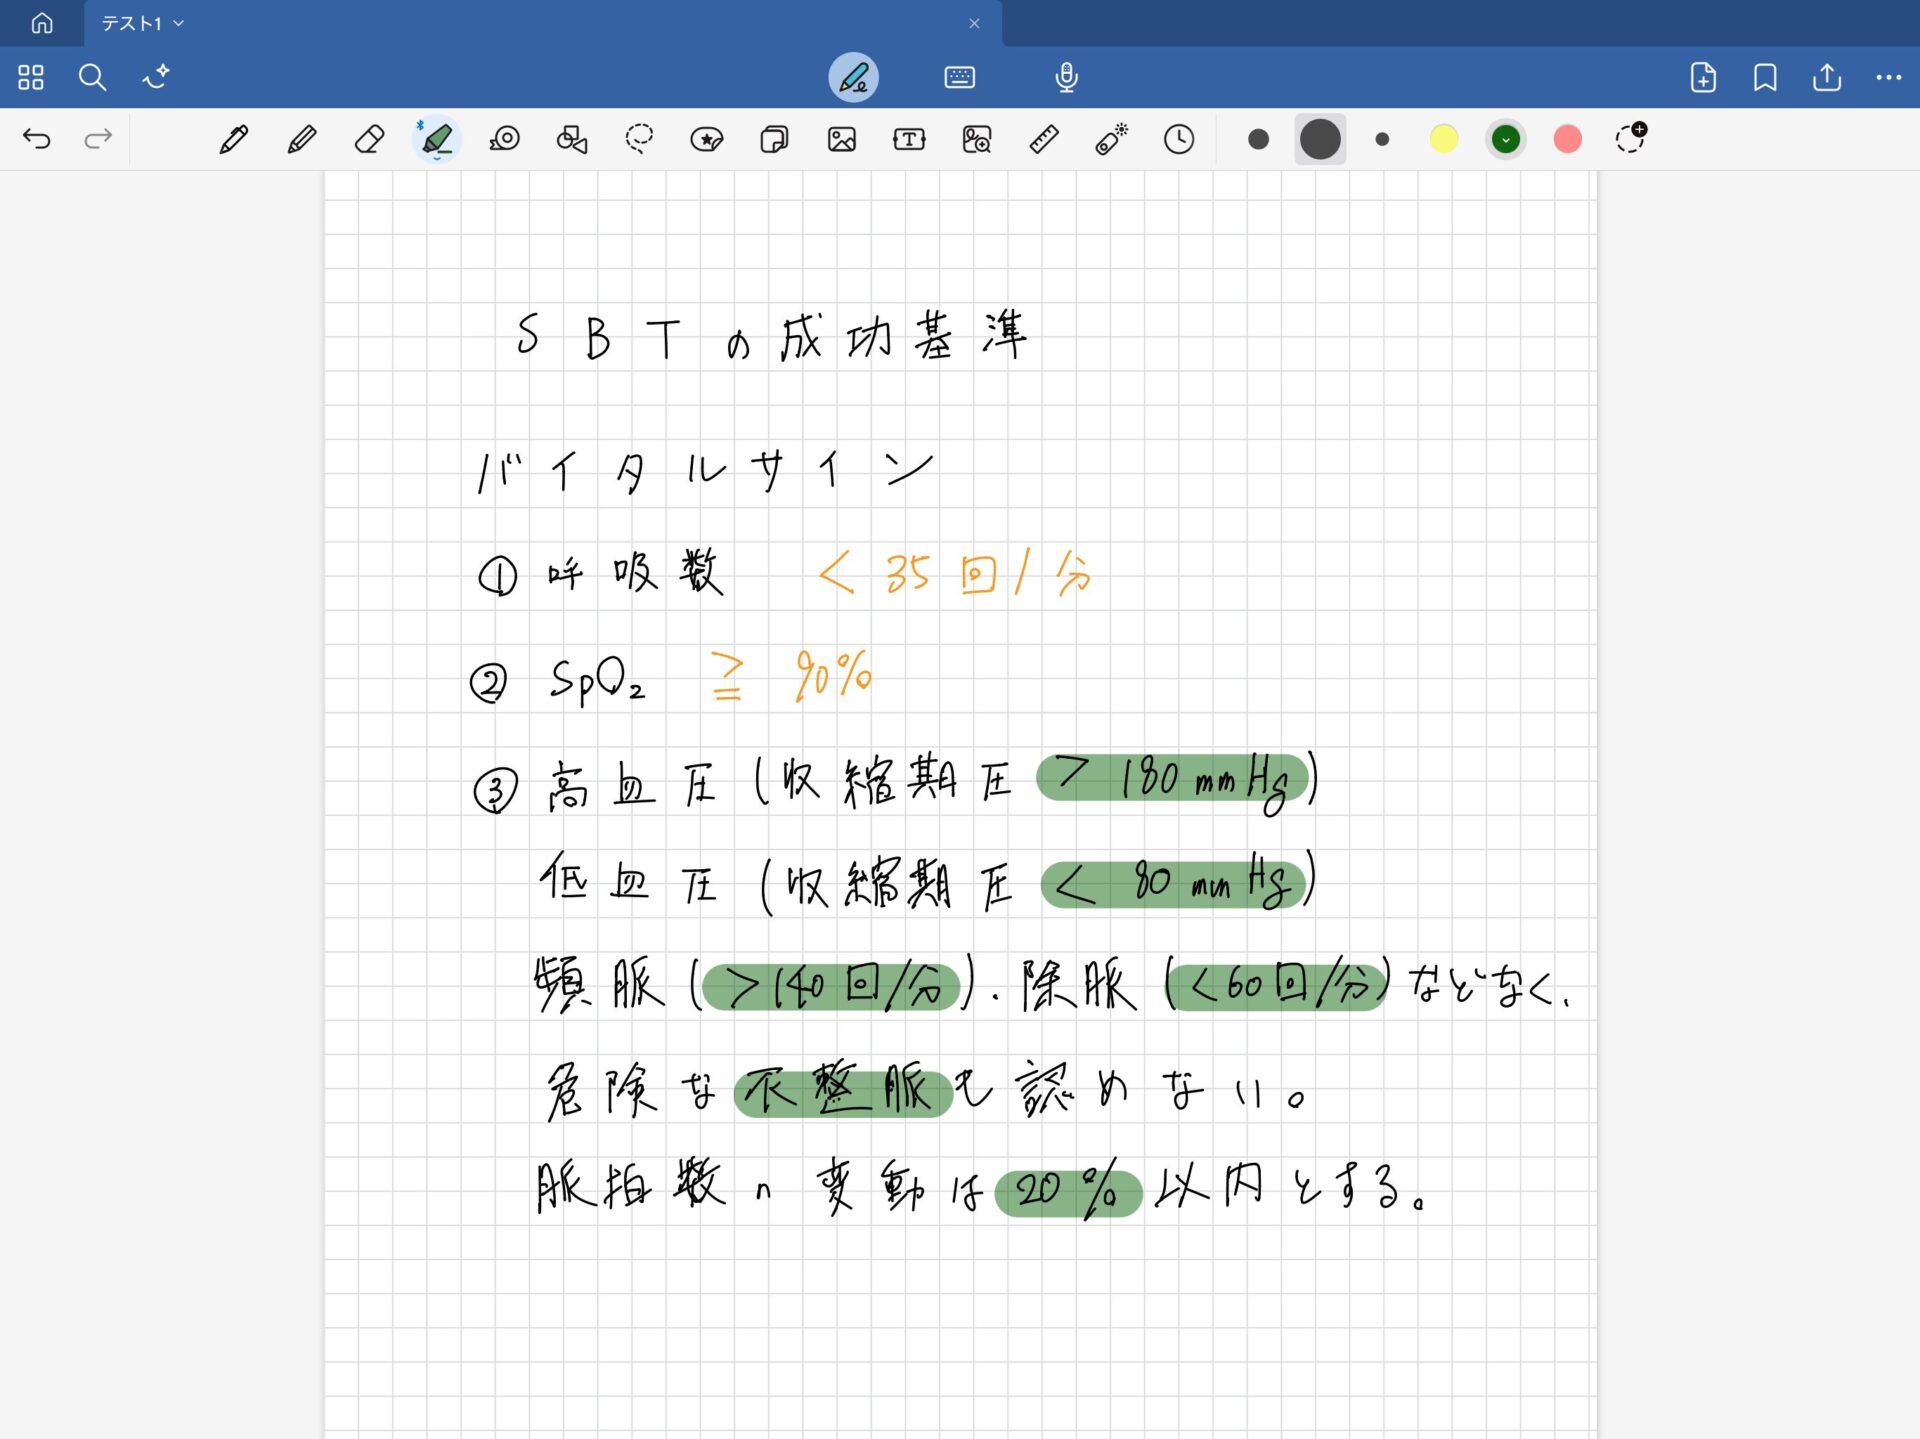 テスト1
SBTの成功基準
バイタルサイン
① 呼吸数 < 35回/分
② SpO₂ ≧ 90%
③ 高血圧(収縮期圧 > 180mmHg)
低血圧(収縮期圧 < 80mmHg)
頻脈(>140回/分).除脈(<60回/分)などなく、
危険な不整脈も認めない。
脈拍数の変動は20%以内とする。